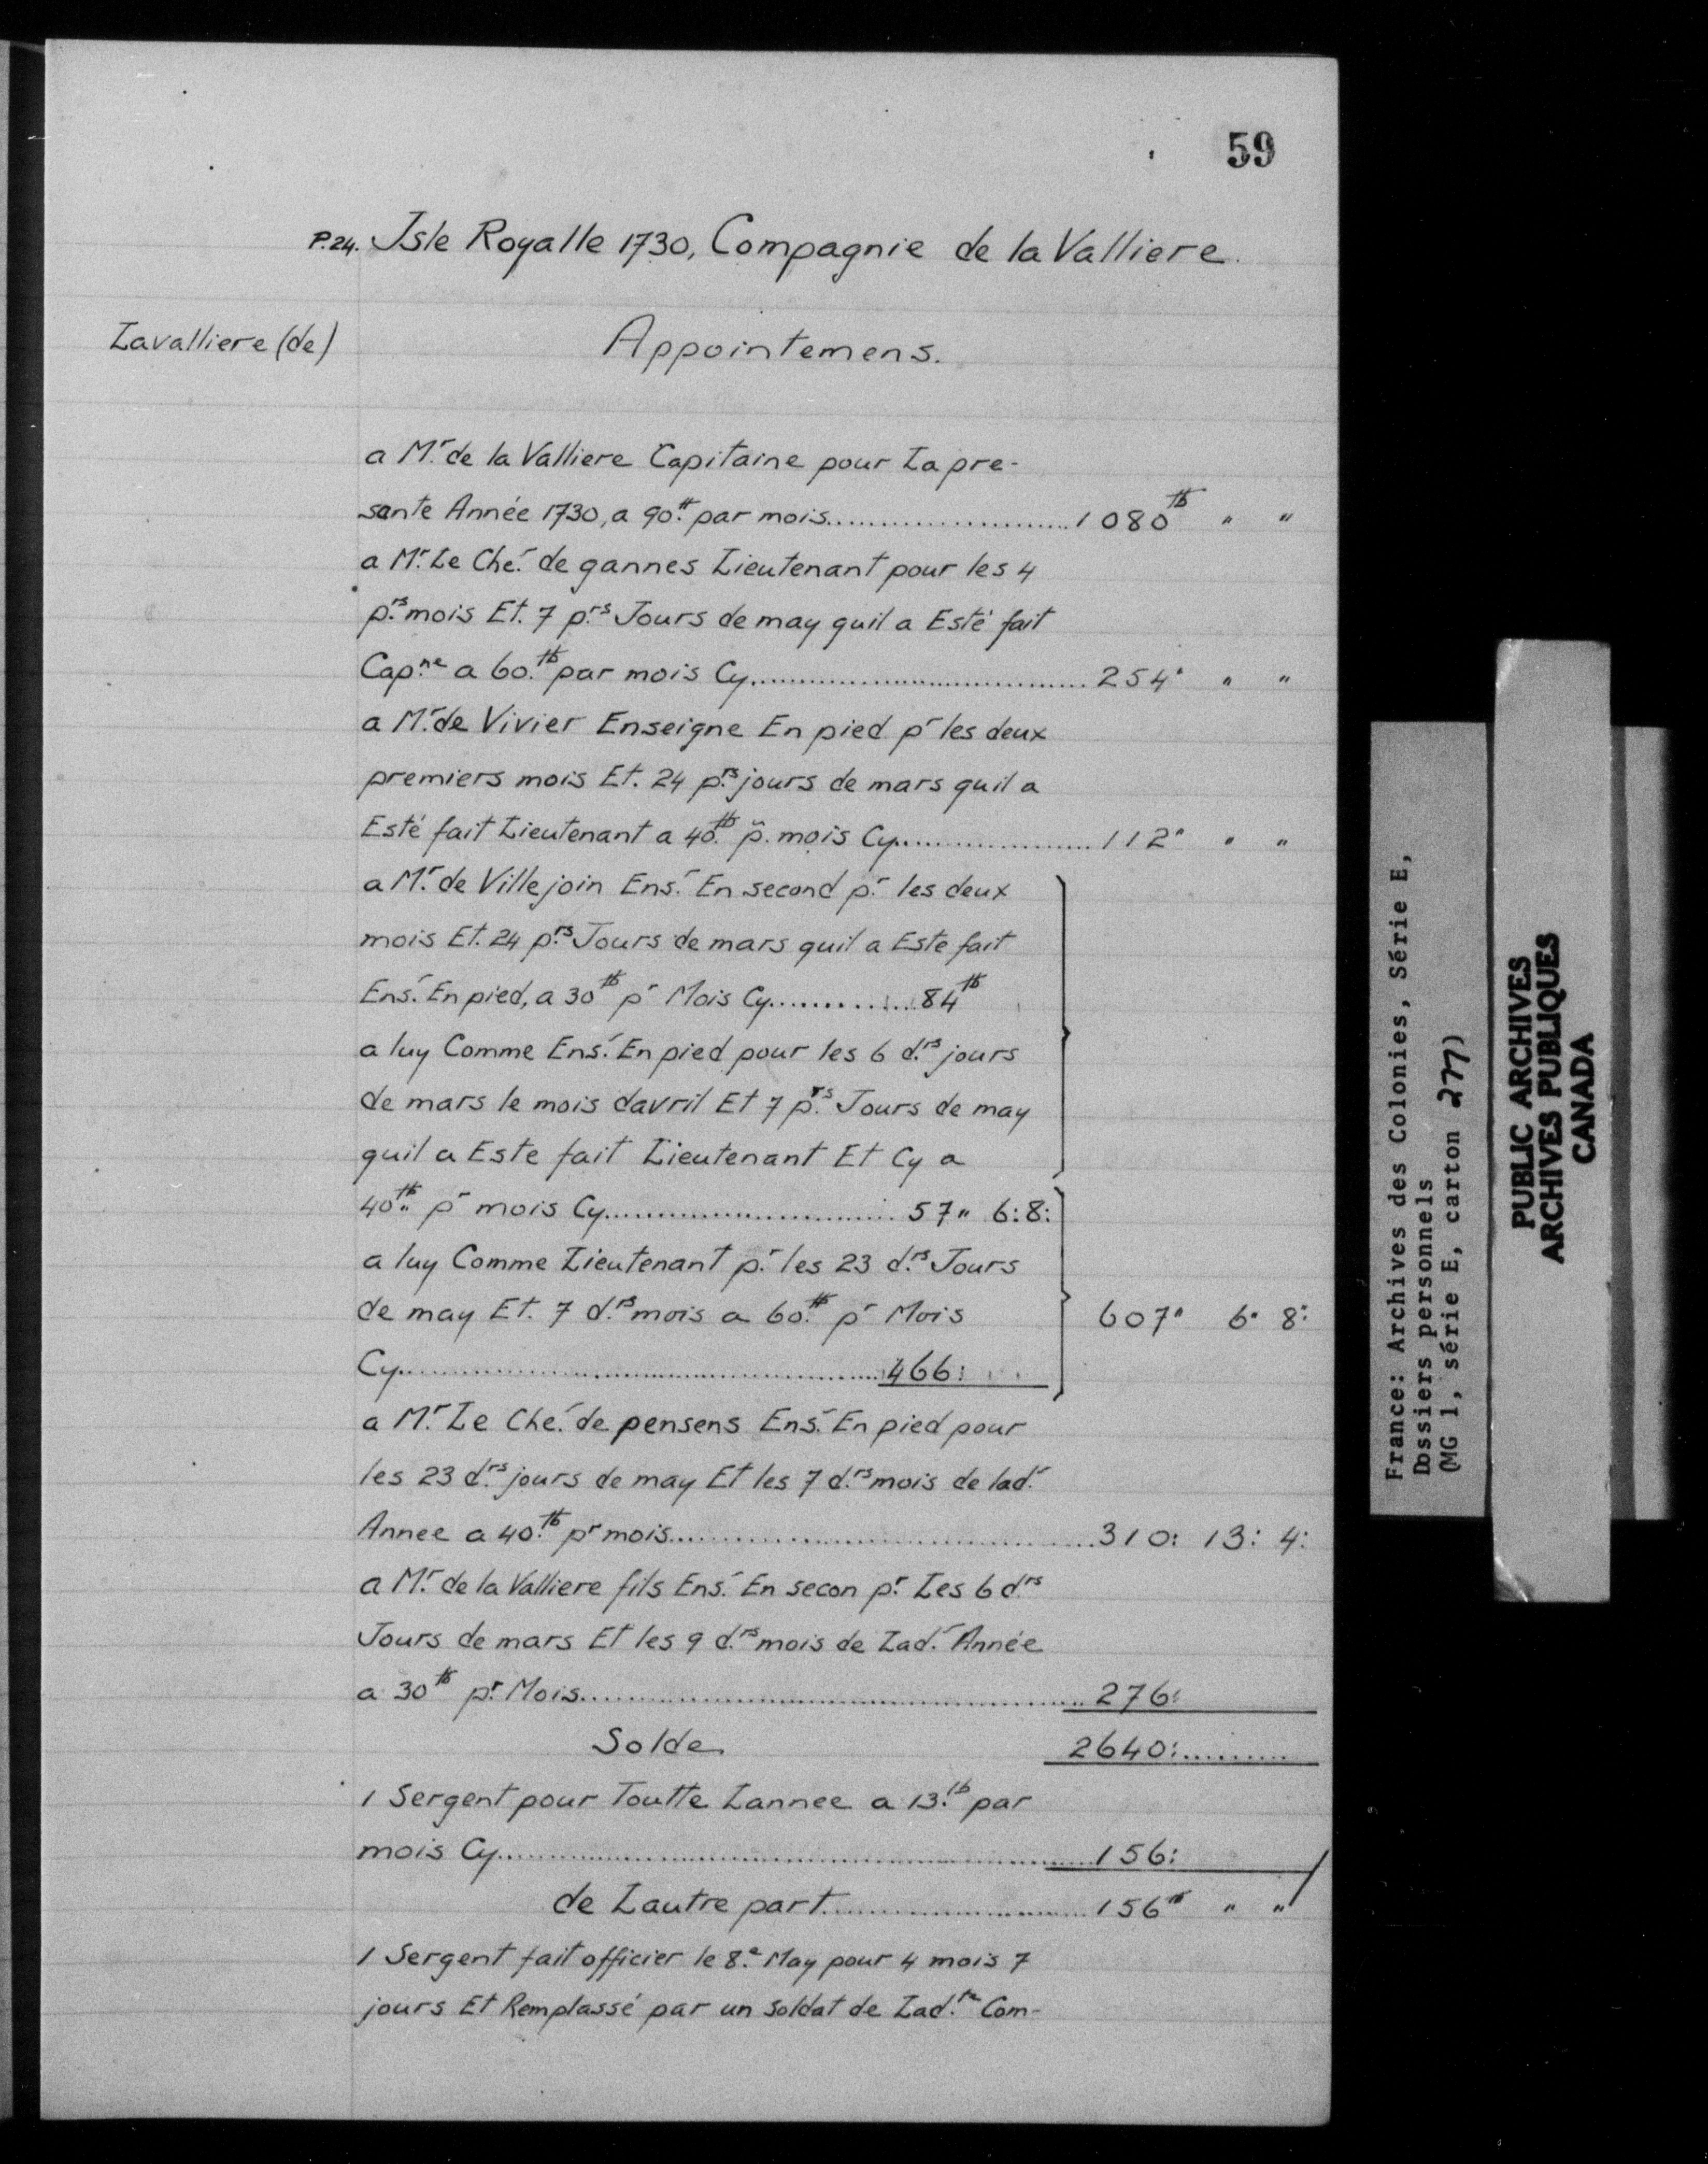 59
P.24. Isle Royalle 1730, Compagnie de la Valliere.
Lavalliere (de)
Appointemens.
a Mr. de la Valliere Capitaine pour La pre-
sante Année 1730, a 90.tt par mois.......................1080 tb " "
a Mr. Le Ché.r de gannes Lieutenant pour les 4
p.rs mois Et. 7 p.rs Jours de may quil a Esté fait
Cap.ne a 60.tb par mois Cy.................................254" " "
a Mr. de Vivier Enseigne En pied pr les deux
premiers mois Et. 24 p.rs jours de mars quil a
Esté fait Lieutenant a 40.tb p. mois Cy...................112" " "
a Mr. de Villejoin Ens.r En second p.r les deux
mois Et. 24 p.rs Jours de mars quil a Este fait
Ens.r En pied, a 30tb pr Mois Cy..............84tb
a luy Comme Ens.r En pied pour les 6 d.rs jours
de mars le mois davril Et 7 p.rs Jours de may
quil a Este fait Lieutenant Et Cy a
40tb" pr mois Cy............................57" 6:8:
a luy Comme Lieutenant p.r les 23 d.rs Jours
de may Et. 7 d.rs mois a 60.tt pr Mois 607" 6" 8:
Cy................................................466:
a Mr. Le Ché.r de pensens Ens.r En pied pour
les 23 d.rs jours de may Et les 7 d.rs mois de lad.r
Annee a 40.tb pr mois..........................................310: 13: 4:
a Mr. de la Valliere fils Ens.r En secon p.r Les 6 d.rs
Jours de mars Et les 9 d.rs mois de Lad.r Année
a 30tb p.r Mois..................................................276:
Solde. 2640:..........
1 Sergent pour Toutte Lannee a 13.lb par
mois Cy...........................................................156:
de Lautre part..........................156tb " "
1 Sergent fait officier le 8.e May pour 4 mois 7
jours Et Remplassé par un soldat de Lad.te Com-
France: Archives des Colonies, Série E,
Dossiers personnels
(MG 1, série E, carton 277)
PUBLIC ARCHIVES
ARCHIVES PUBLIQUES
CANADA